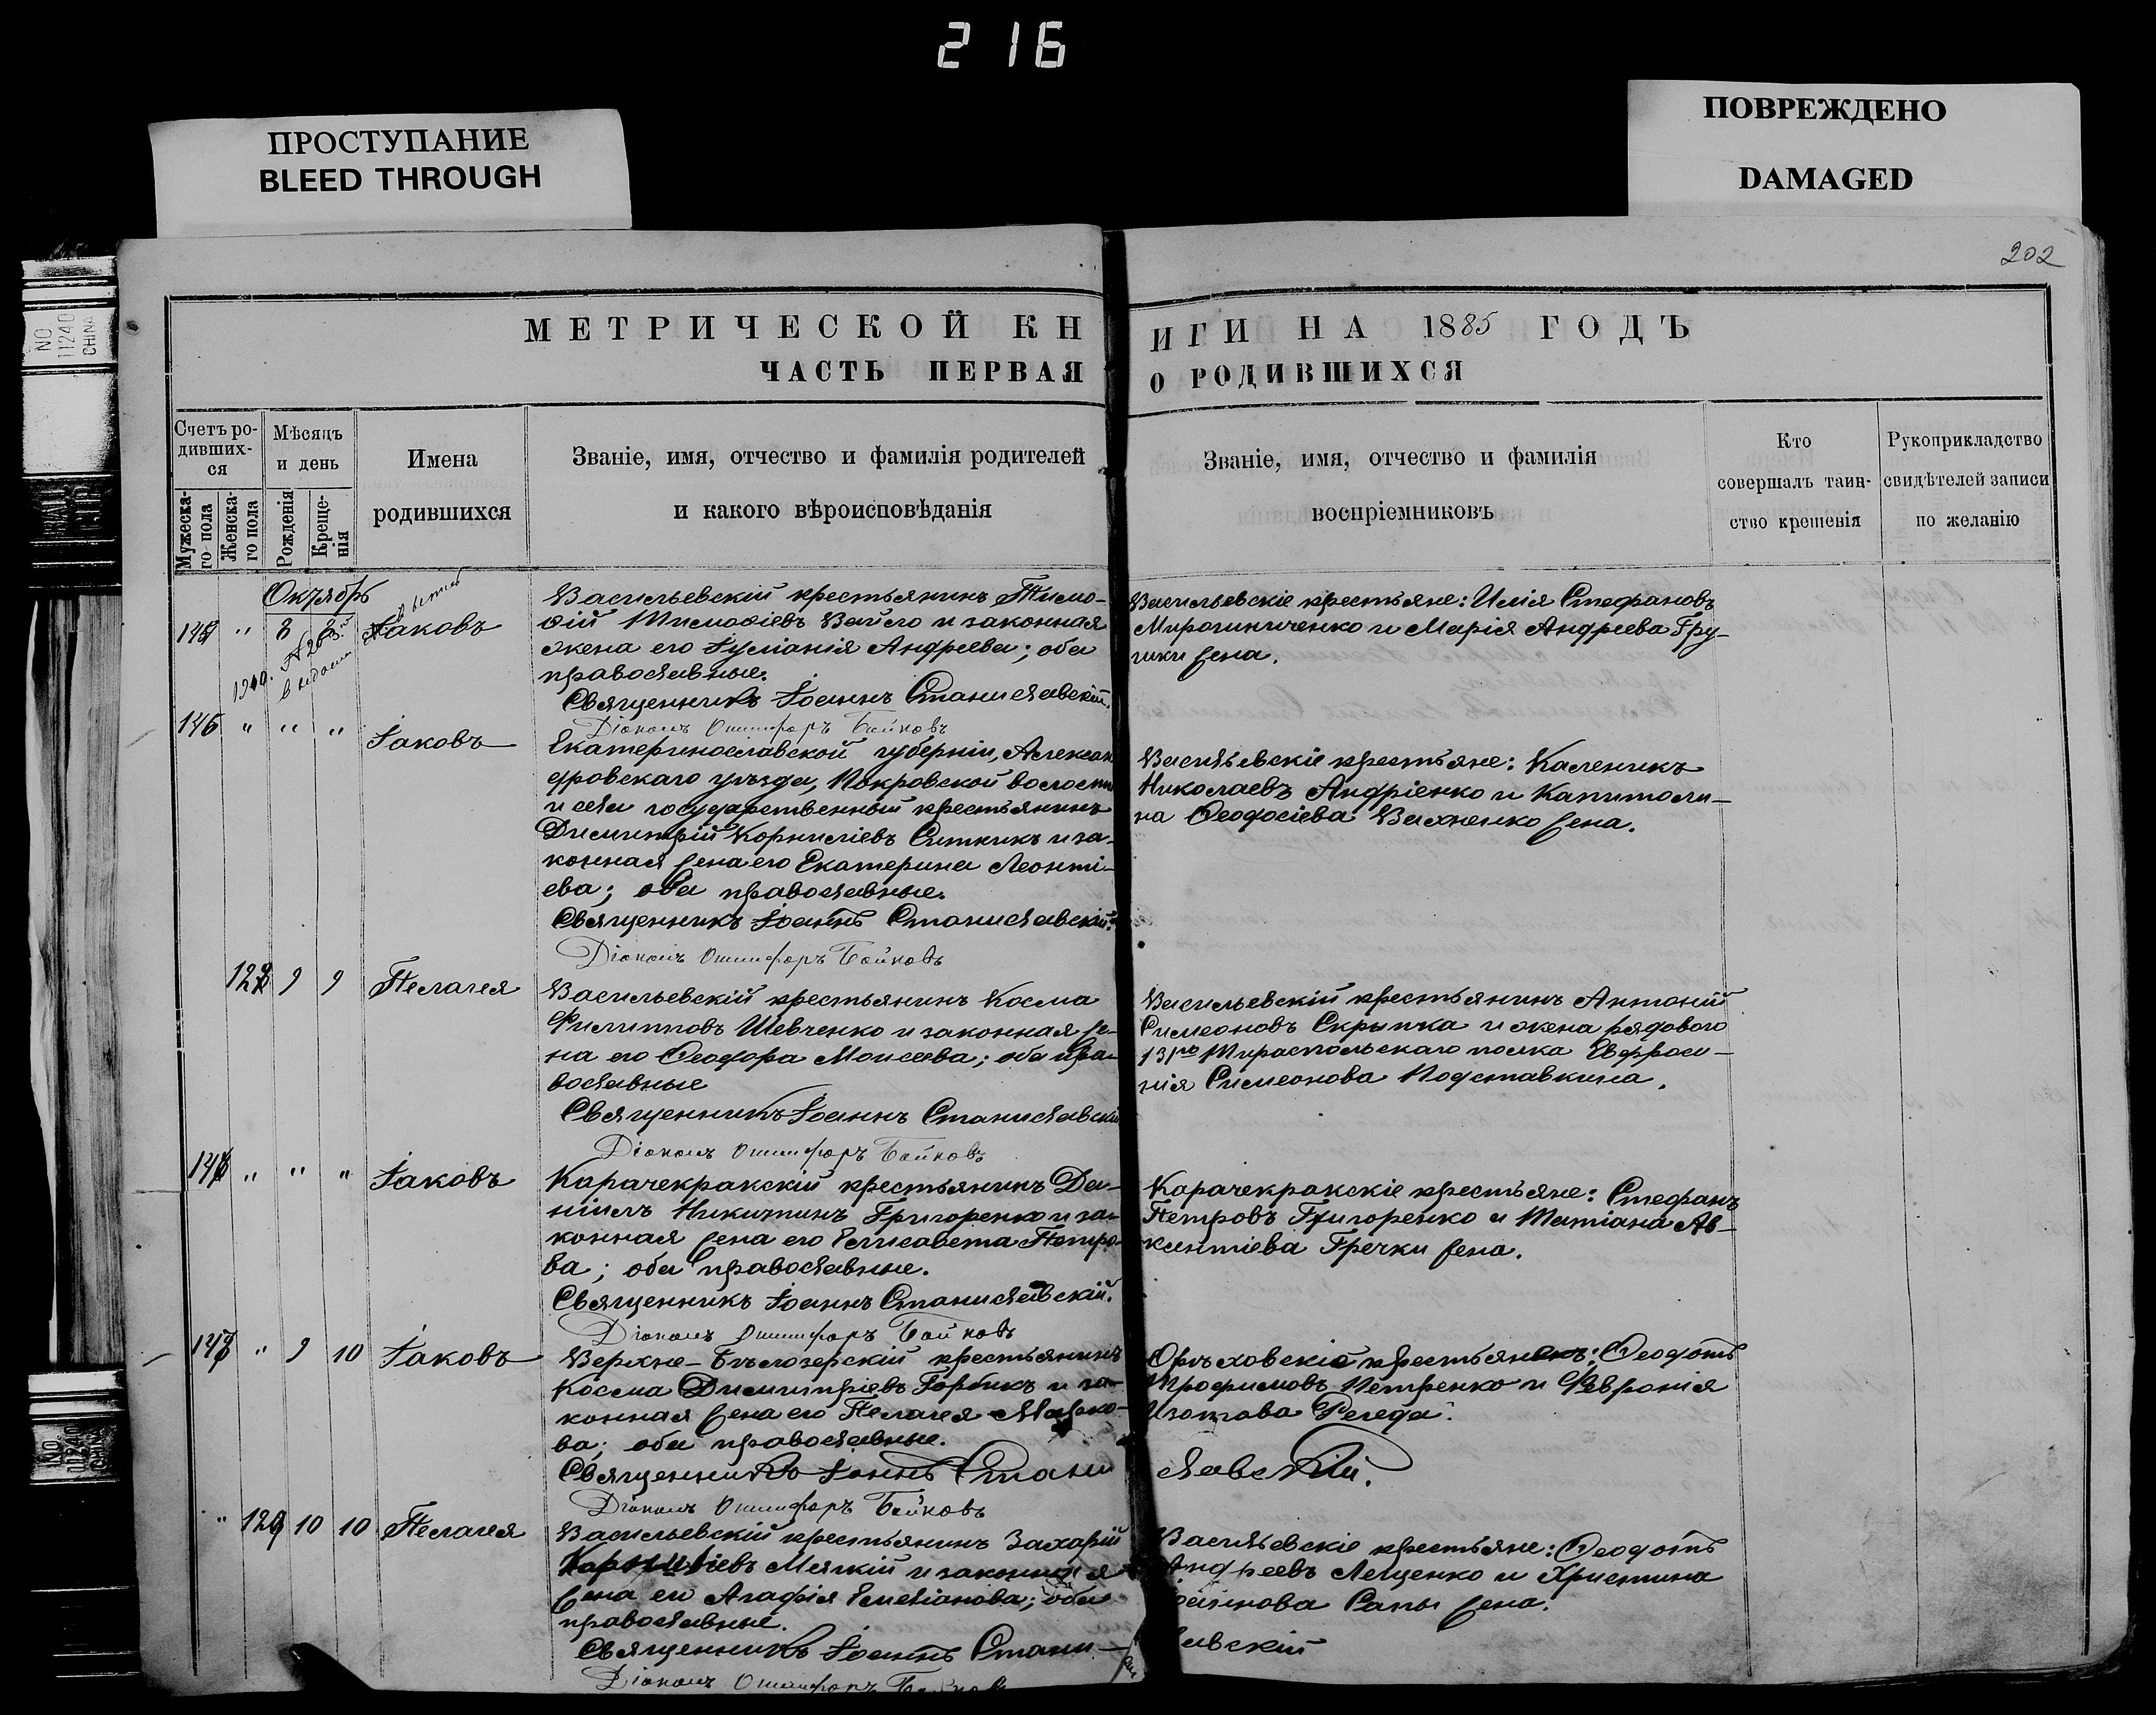 216
ПРОСТУПАНИЕ
BLEED THROUGH
ПОВРЕЖДЕНО
DAMAGED
202
NO
11240
CHINA
МЕТРИЧЕСКОЙ КНИГИ НА 1885 ГОДЪ
ЧАСТЬ ПЕРВАЯ О РОДИВШИХСЯ
Счетъ ро-
дивших-
ся
Мужеска-
го пола
Женска-
го пола
Мѣсяцъ
и день
Рожденія
Креще-
нія
Имена
родившихся
Званіе, имя, отчество и фамилія родителей
и какого вѣроисповѣданія
Званіе, имя, отчество и фамилія
воспріемниковъ
Кто
совершалъ таин-
ство крещенія
Рукоприкладство
свидѣтелей записи
по желанію
Октябрь
145 " 8 8 Іаковъ
1910.
Васильевскій крестьянинъ Тимо-
ѳій Тимоѳіевъ и законная
жена его Іуліанія Андреева; оба
православные.
Священникъ Іоаннъ Станиславскій.
Діаконъ Онисифоръ Бойковъ
Васильевскіе крестьяне: Илія Стефановъ
Мирошниченко и Марія Андреева
жена.
146 " " " Іаковъ
Екатеринославской губерніи, Алексан
дровскаго уѣзда, Покровской волости
и села государственный крестьянинъ
Димитрій Корниліевъ Ситникъ и за-
конная жена его Екатерина Леонті-
ева; оба православные.
Священникъ Іоаннъ Станиславскій.
Діаконъ Онисифоръ Бойковъ
Васильевскіе крестьяне: Каленикъ
Николаевъ Андріенко и Капитоли-
на Ѳеодосіева Вахненко жена.
128 9 9 Пелагея
Васильевскій крестьянинъ Косма
Филипповъ Шевченко и законная же-
на его Ѳеодора Моисеева; оба пра-
вославные
Священникъ Іоаннъ Станиславскій
Діаконъ Онисифоръ Бойковъ
Васильевскій крестьянинъ Антоній
Симеоновъ Скрыпка и жена рядового
131го Тираспольскаго полка Евфроси-
нія Симеонова Подставкина.
" " " Іаковъ
Карачекракскій крестьянинъ Да-
ніилъ Никитинъ Григоренко и за-
конная жена его Елисавета Петро-
ва; оба православные.
Священникъ Іоаннъ Станиславскій.
Діаконъ Онисифоръ Бойковъ
Карачекракскіе крестьяне: Стефанъ
Петровъ Григоренко и Татіана Ав-
ксентіева Гречки жена.
" 9 10 Іаковъ
Верхне-Бѣлозерскій крестьянинъ
Косма Димитріевъ Горбикъ и за-
конная жена его Пелагея Марко-
ва; оба православные.
Священникъ Іоаннъ Станиславскій.
Діаконъ Онисифоръ Бойковъ
Орѣховскіе крестьяне: Ѳеодотъ
Трофимовъ Петренко и Февронія
Изотова
" 129 10 10 Пелагея
Васильевскій крестьянинъ Захарій
Корниліевъ Мягкій и законная
жена его Агафія Емеліанова; оба
православные.
Священникъ Іоаннъ Станиславскій
Діаконъ Онисифоръ Бойковъ
Васильевскіе крестьяне: Ѳеодотъ
Андреевъ Лещенко и Христина
Сапы жена.
NO.
11240
CHINA